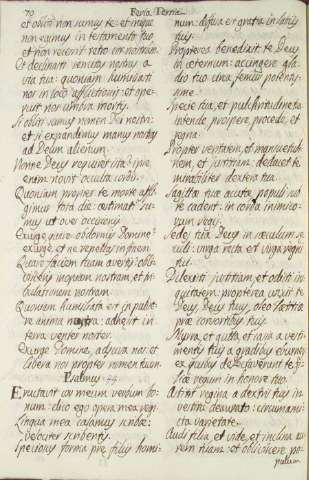 70
Feria Tertia
et obliti non sumus te: et inique
non egimus in testamento tuo
et non recessit retro cor nostrum:
Et declinasti semitas nostras a
via tua: quoniam humiliasti
nos in loco afflictionis: et ope-
ruit nos umbra mortis.
Si obliti sumus nomen Dei nostri:
et si expandimus manus nostras
ad Deum alienum.
Nonne Deus requiret ista: ipse
enim novit occulta cordis.
Quoniam propter te morte affi-
gimur tota die: æstimati su-
mus ut oves occisionis
Exurge quare obdormis Domine?
exurge et ne repellas in finem.
Quare faciem tuam avertis: obli-
visceris inopiam nostram, et tri-
bulationem nostram.
Quoniam humiliata est in pulve-
re anima nostra: adhesit in
terra venter noster.
Exurge Domine, adjuva nos: et
libera nos propter nomen tuum.
Psalmus 44
Eructavit cor meum verbum bo-
num: dico ego opera mea regi.
Lingua mea calamus scribæ:
velociter scribentis.
Speciosus forma præ filiis homi-
num: diffusa est gratia in labiis
tuis:
Propterea benedixit te Deus
in æternum: accingere gla-
dio tuo
Specie tua, et pulchritudine tua
intende prospere procede, et
regna.
Propter veritatem, et mansuetudi-
nem, et justitiam: deducet te
mirabiliter dextera tua.
Sagittæ tuæ acutæ populi sub
te cadent: in corda inimico-
rum regis.
Sedes tua Deus in sæculum sæ-
culi: virga recta est virga regni
tui.
Dilexisti justitiam, et odisti ini-
quitatem: propterea unxit te
Deus, Deus tuus, oleo lætitiæ
præ consortibus tuis.
Myrra, et gutta, et casia a vesti-
mentis tuis a gradibus eburneis
ex quibus delectaverunt te fi-
liæ regum in honore tuo.
Astitit regina a dextris tuis in
vestitu deaurato: circumami-
cta varietate.
Audi filia, et vide, et inclina au-
rem tuam: et obliviscere po-
pulum